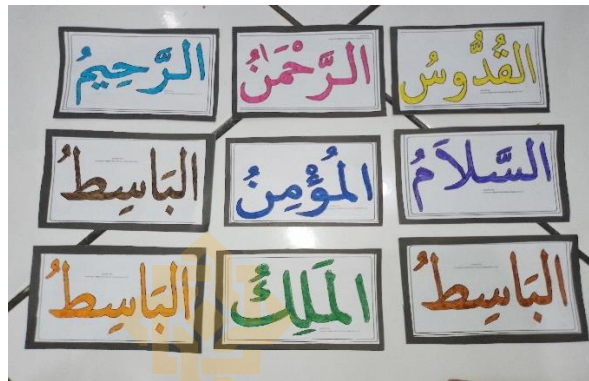 القُدُّوسُ الرَّحْمَنُ الرَّحِيمُ
السَّلاَمُ المُؤْمِنُ البَاسِطُ
البَاسِطُ المَلِكُ البَاسِطُ